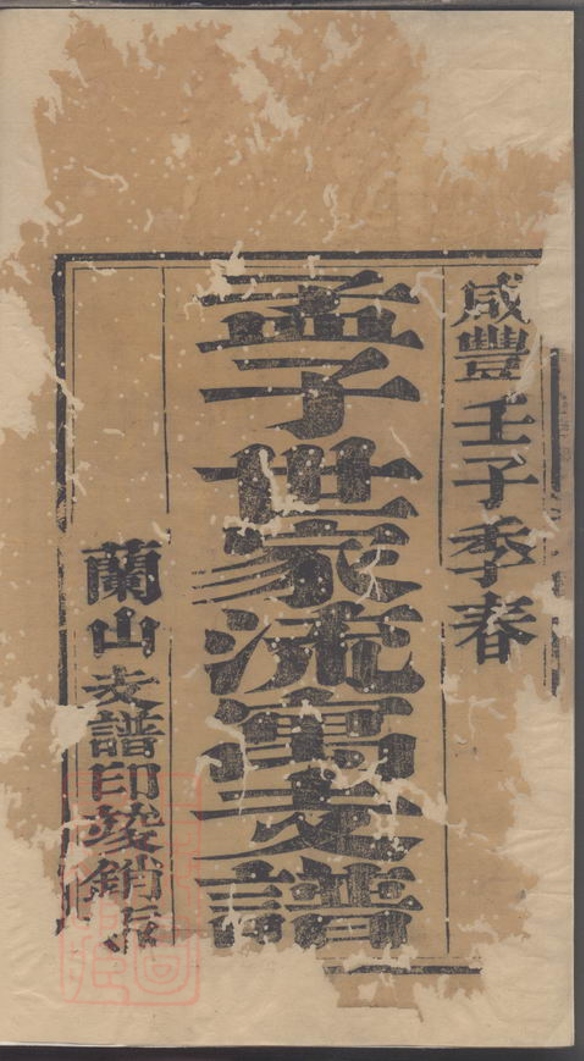 咸豐壬子季春
孟子世家流寓支譜
蘭山支譜印竣銷板